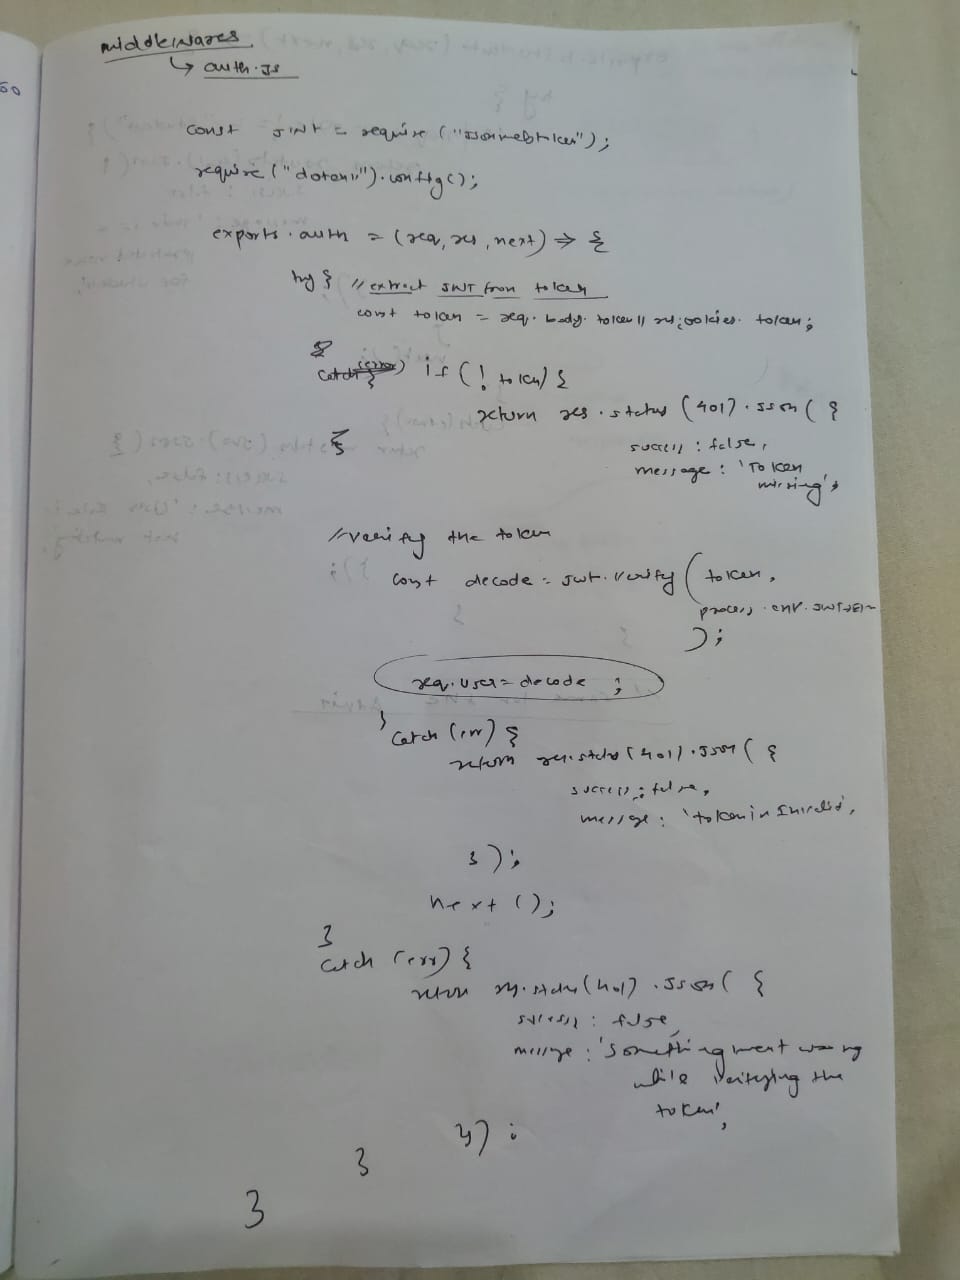 middlewares
↳ auth.js
const JWT = require ("jsonwebtoken");
require ("dotenv").config();
exports.auth = (req, res, next) => {
try { // extract JWT from token
const token = req.body.token || req.cookies.token;
if (! token) {
return res.status (401).json ( {
success : false,
message : 'Token
missing',
}
// verify the token
const decode = jwt.verify ( token,
);
req.user = decode ;
}
catch (err) {
return res.status (401).json ( {
success : false,
message : 'token is invalid',
} );
next ();
}
catch (err) {
return res.status (401).json ( {
success : false,
message : 'Something went wrong
while verifying the
token',
} );
}
}